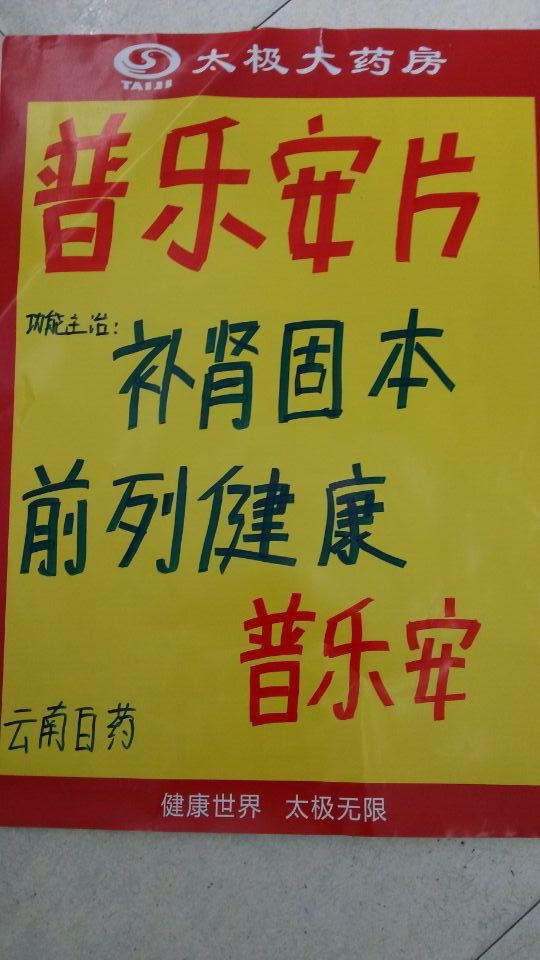 TAIJI 太极大药房
普乐安片
功能主治:
补肾固本
前列健康
普乐安
云南白药
健康世界 太极无限